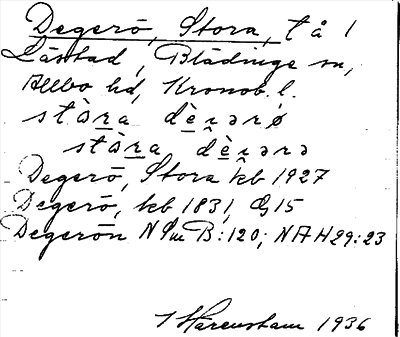 Degerö, Stora, tå 1
Låstad, Blädinge sn,
Allbo hd, Kronob. l.
stàra dèɛ̯ərø
stàra dèɛ̯ərə
Degerö, Stora kb 1927
Degerö, kb 1831, G 15
Degerön NSmB: 120; NAH29: 23
Harenstam 1936